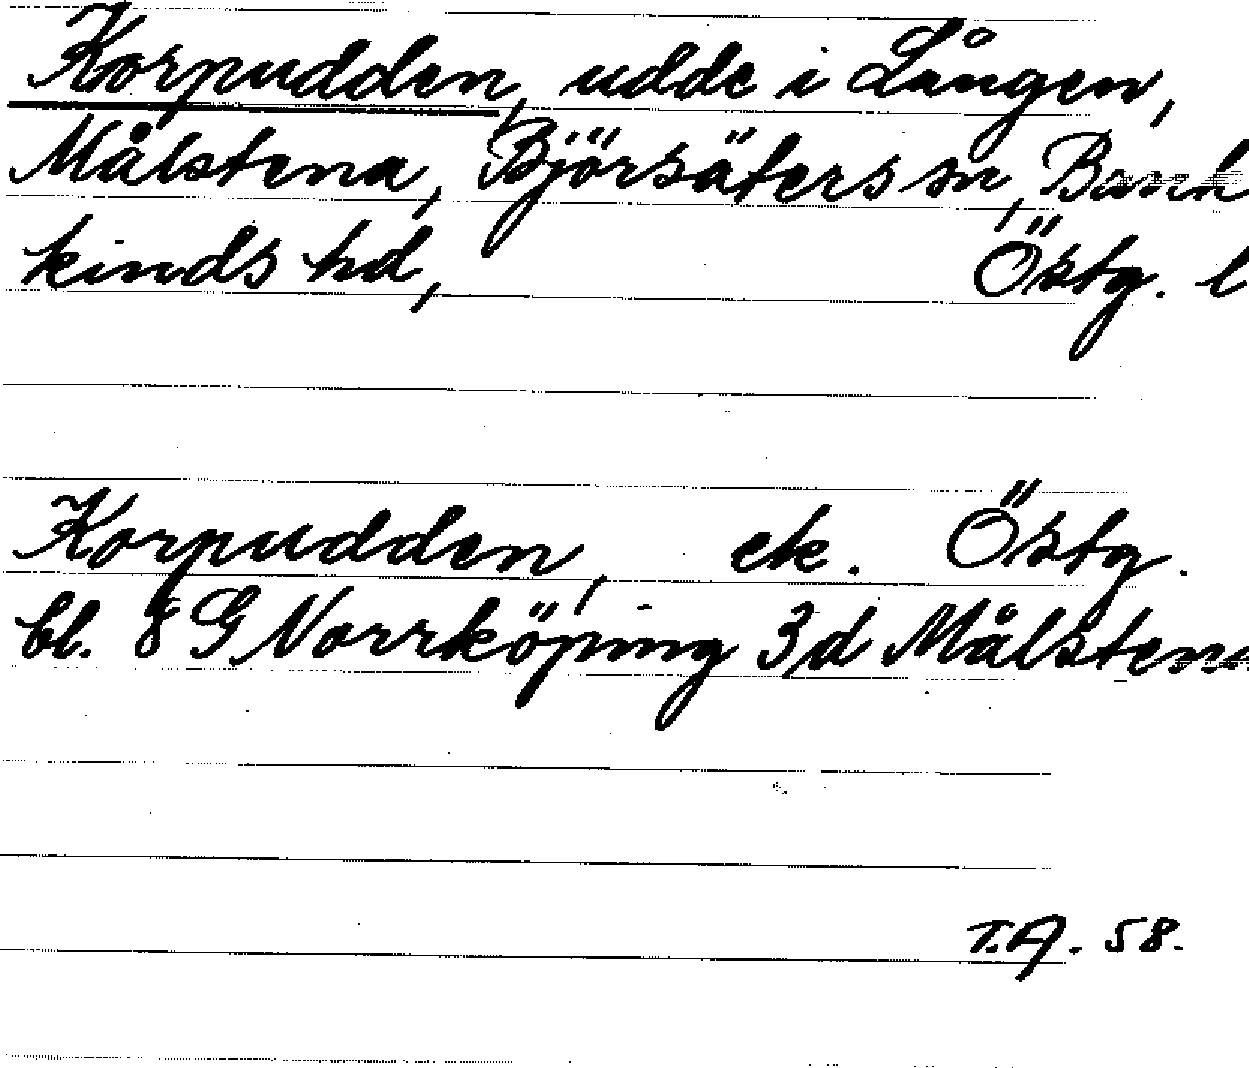 Korpudden, udde i Lången,
Målstena, Björsäters sn, Bank
kinds hd, Östg. l
Korpudden, ek. Östg.
bl. 8 G Norrköping 3d Målstena
T.A. 58.